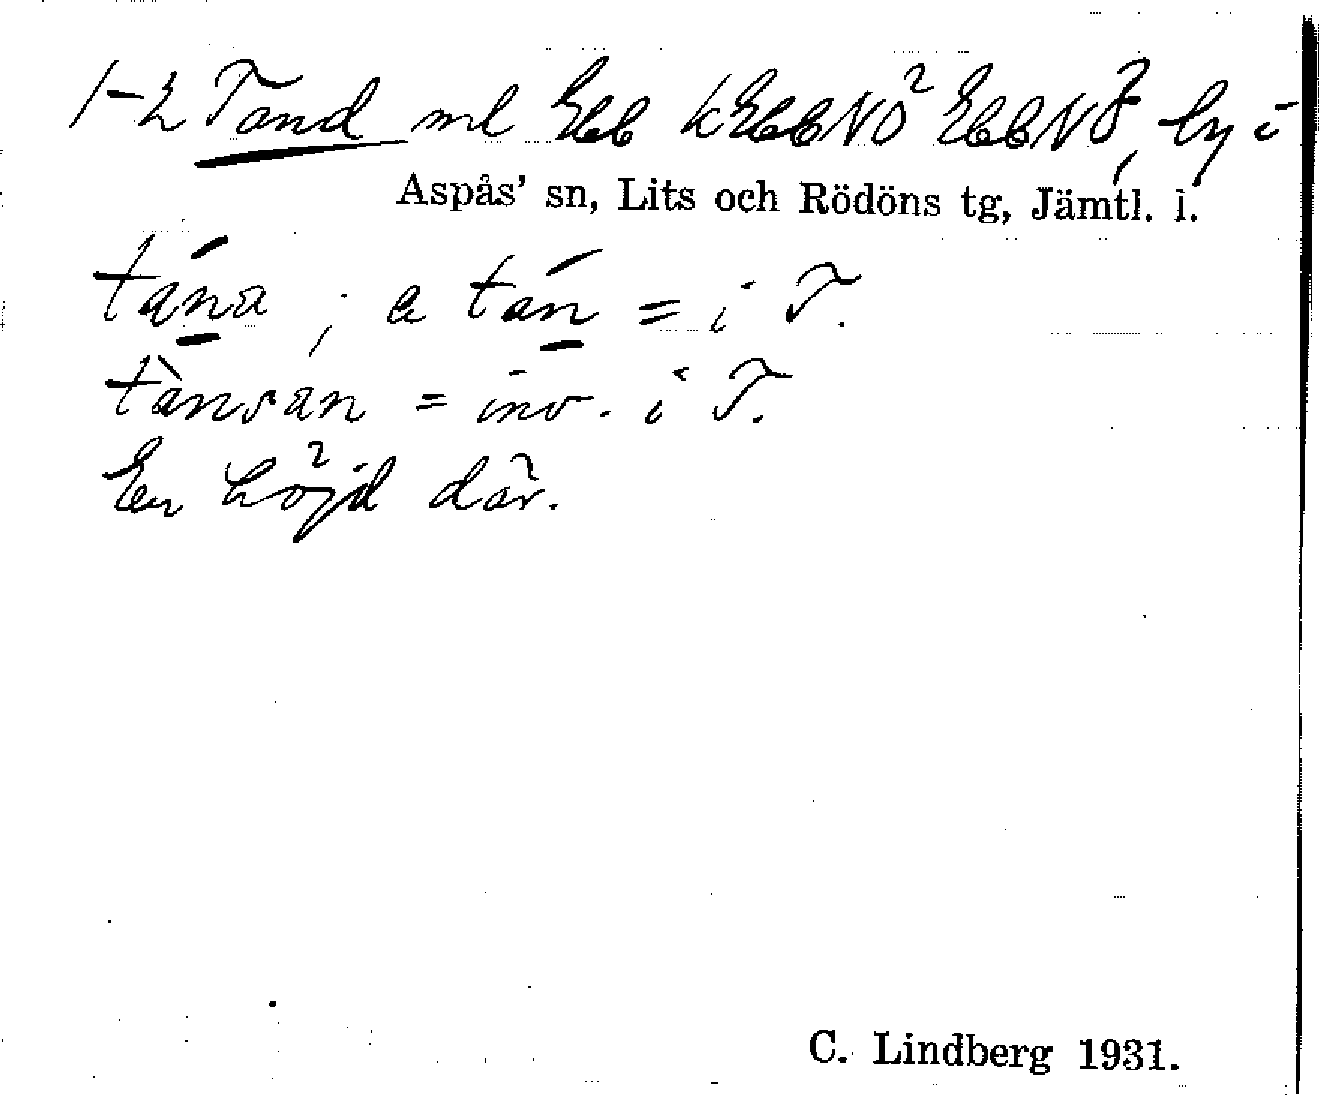 1-2 Tand ml Ebb kEbbNÖ EbbNÖ, by i
Aspås' sn, Lits och Rödöns tg, Jämtl. l.
tána ; a tán = i T.
tànsan = inv. i T.
En höjd där.
C. Lindberg 1931.